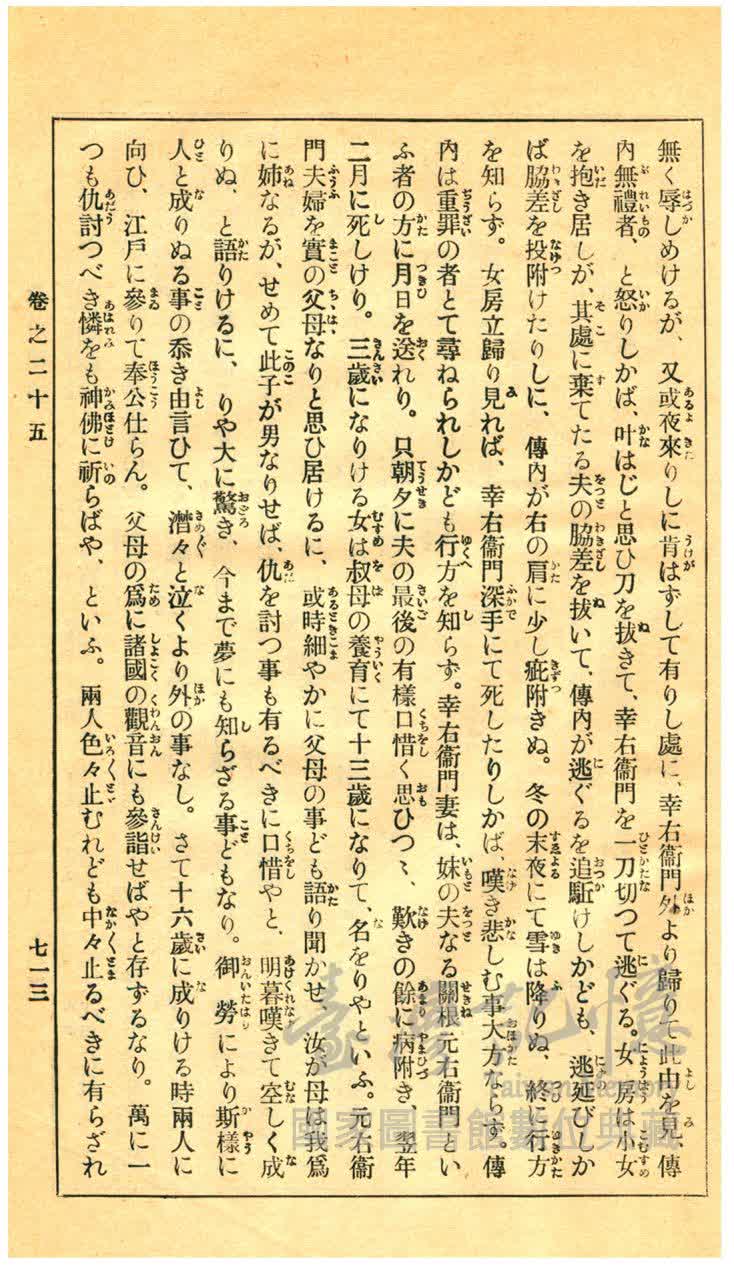 無く辱しめけるが、又或夜來りしに肯はずして有りし處に、幸右衞門外より歸りて此由を見、傳
内無禮者、と怒りしかば、叶はじと思ひ刀を拔きて、幸右衞門を一刀切つて逃ぐる。女房は小女
を抱き居しが、其處に棄てたる夫の脇差を拔いて、傳内が逃ぐるを追駈けしかども、逃延びしか
ば脇差を投附けたりしに、傳内が右の肩に少し疵附きぬ。冬の末夜にて雪は降りぬ、終に行方
を知らず。女房立歸り見れば、幸右衞門深手にて死したりしかば、嘆き悲しむ事大方ならず。傳
内は重罪の者とて尋ねられしかども行方を知らず。幸右衞門妻は、妹の夫なる關根元右衞門とい
ふ者の方に月日を送れり。只朝夕に夫の最後の有樣口惜く思ひつゝ、歎きの餘に病附き、翌年
二月に死しけり。三歲になりける女は叔母の養育にて十三歲になりて、名をりやといふ。元右衞
門夫婦を實の父母なりと思ひ居けるに、或時細やかに父母の事ども語り聞かせ、汝が母は我爲
に姉なるが、せめて此子が男なりせば、仇を討つ事も有るべきに口惜やと、明暮嘆きて空しく成
りぬ、と語りけるに、りや大に驚き、今まで夢にも知らざる事どもなり。御勞により斯樣に
人と成りぬる事の忝き由言ひて、潸々と泣くより外の事なし。さて十六歲に成りける時兩人に
向ひ、江戶に參りて奉公仕らん。父母の爲に諸國の觀音にも參詣せばやと存ずるなり。萬に一
つも仇討つべき憐をも神佛に祈らばや、といふ。兩人色々止むれども中々止るべきに有らざれ
卷之二十五
七一三
臺灣記憶
國家圖書館數位典藏